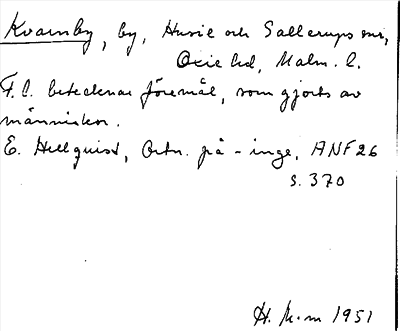 Kvarnby, by, Husie och Sallerups snr,
Oxie hd, Malm. l.
F.l. betecknar föremål, som gjorts av
människor.
E. Hellquist, Ortn. på -inge, ANF 26
s. 370
H. K-m 1951